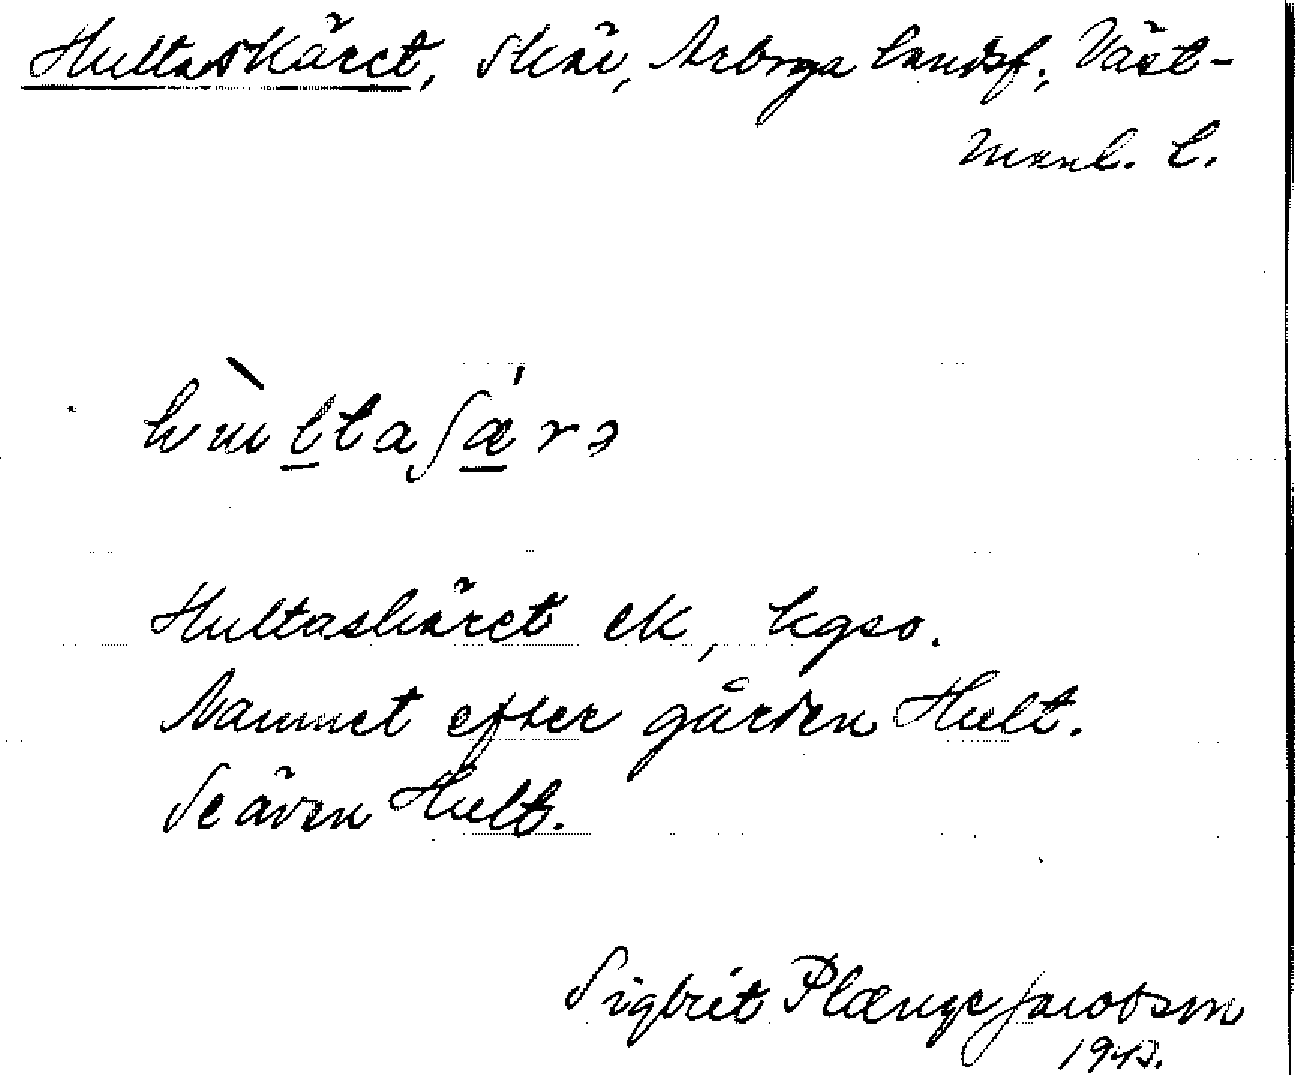 Hultaskäret, skär, Arboga landsf., Väst-
manl. l.
Hultaskäret ek, kgso.
Namnet efter gården Hult.
Se även Hult.
Sigbrit Plænge Jacobson